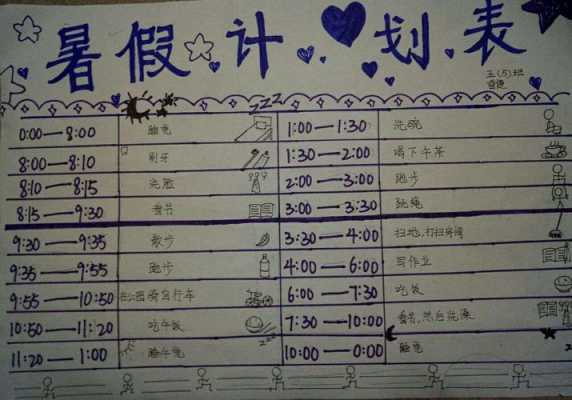 暑假计划表
五(5)班
zzz
0:00—8:00 睡觉 1:00—1:30 洗碗
8:00—8:10 刷牙 1:30—2:00 喝下午茶
8:10—8:15 洗脸 2:00—3:00 跑步
8:15—9:30 看书 3:00—3:30 跳绳
9:30—9:35 散步 3:30—4:00 扫地,打扫房间
9:35—9:55 跑步 4:00—6:00 写作业
9:55—10:50 在公园骑自行车 6:00—7:30 吃饭
10:50—11:20 吃午饭 7:30—10:00 看书,然后洗澡
11:20—1:00 睡午觉 10:00—0:00 睡觉